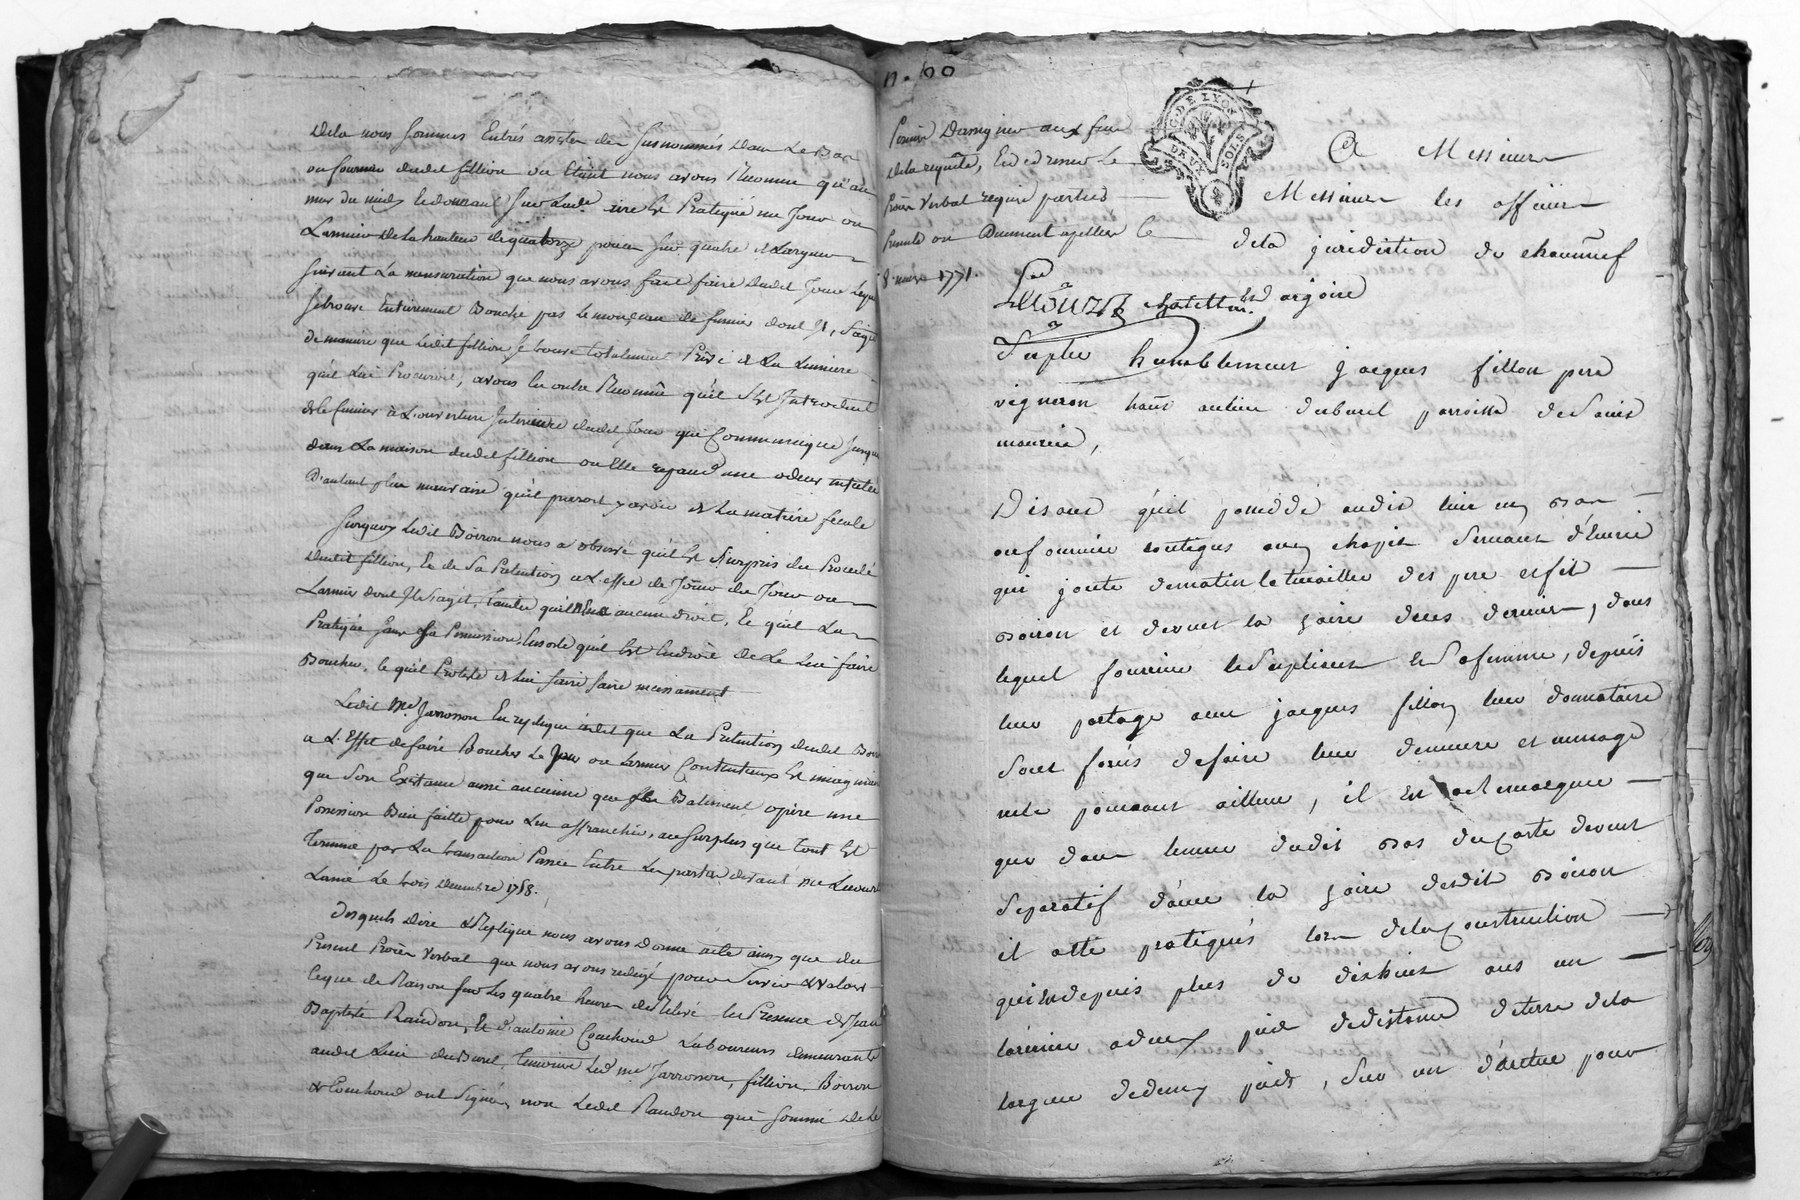 Dela nous sommes Entrés assisté des susnommés dans Le Bas
ou fournier dudit fillion ou Etant nous avons Reconnu qu'au
mur du midy il est Pratiqué un Jour ou
Larmier de la hauteur de quatorze pouces sur quatre de Largeur
suivant La mensuration que nous avons fait faire dudit Jour Lequel
se trouve Entierement Bouché par le monceau de fumier dont il s'agit
de maniere que ledit fillion se trouve totalement Privé de La Lumiere
qu'il Lui Procuroit, avons En outre Reconnu qu'il s'est Introduit
de le fumier à L'ouverture Interieure dudit Jour qui Communique Jusque
dans La maison dudit fillion ou Elle repand une odeur infecte
D'autant plus mauvaise qu'il paroit y avoir de La matiére fecale
Surquoy Ledit Boiron nous a observé qu'il Est surpris du Procedé
dudit fillion, Et de Sa Pretention a L'effet de Jouir du Jour ou
Larmier dont Il s'agit, tandis qu'il N'en a aucun droit, Et qu'il La
Pratiqué sans sa Permission, Ensorte qu'il Est Endroit de Le Lui faire
Boucher, ce qu'il Proteste de Lui faire faire incessament
Ledit Me Jarrosson En replique a dit que La Pretention dudit Boiron
a L'Effet de faire Boucher Le Jour ou Larmier Contentieux Est imaginaire
que Son Existance aussi ancienne que le Batiment opére une
Possession Bien faitte pour L'en affranchir, au surplus que tout Est
Terminé par La transaction Passée Entre Les parties devant Me
Lainé Le trois decembre 1758.
Desquels dire & Replique nous avons Donné acte ainsy que du
Present Procès Verbal que nous avons redigé pour Servir & Valoir
ce que de Raison sur Les quatre heures de Relevé En Presence de Jean
Baptiste Randon, Et d'antoine Couchoud Laboureurs demeurants
audit Lieu du Burel, temoins Led. Me Jarrosson, fillion, Boiron
& Couchoud ont Signé, non Ledit Randon qui sommé de Le
n. 60
Permis D'assigner aux fins
de la requête, Et de dresser le
Procès verbal requis parties
presentes ou Duement apellées le
8. mars 1771.
G. DE LYON
DEUX SOLS
A Messieurs
Messieurs les officiers
dela juridiction de
chatellain d'argoire
Suplie humblement jacques fillon pere
vigneron hant au lieu duburel parroisse de Saint
maurice,
Disant qu'il possede audit lieu un bas
ou fourniere contigus avec chapit servant d'Ecurie
qui joute de matin le tenaillier des pere et fils
Boiron et devant la Jaire deces derniers, dans
lequel fourniere le Supliant et Sa femme, depuis
leur partage avec jacques fillon leur donnataire
sont forcés defaire leur demeure et mesnage
ne le pouvant ailleurs, il Est a remarquer
que dans lemur dudit bas du costé devent
Separatif d'avec la Jaire desdits Boiron
il a eté pratiqués lors dela construction
qui Est depuis plus de dix huit ans un
larmier a deux pieds de distance de terre dela
largeur dedeux pieds, Sur un d'autre pour